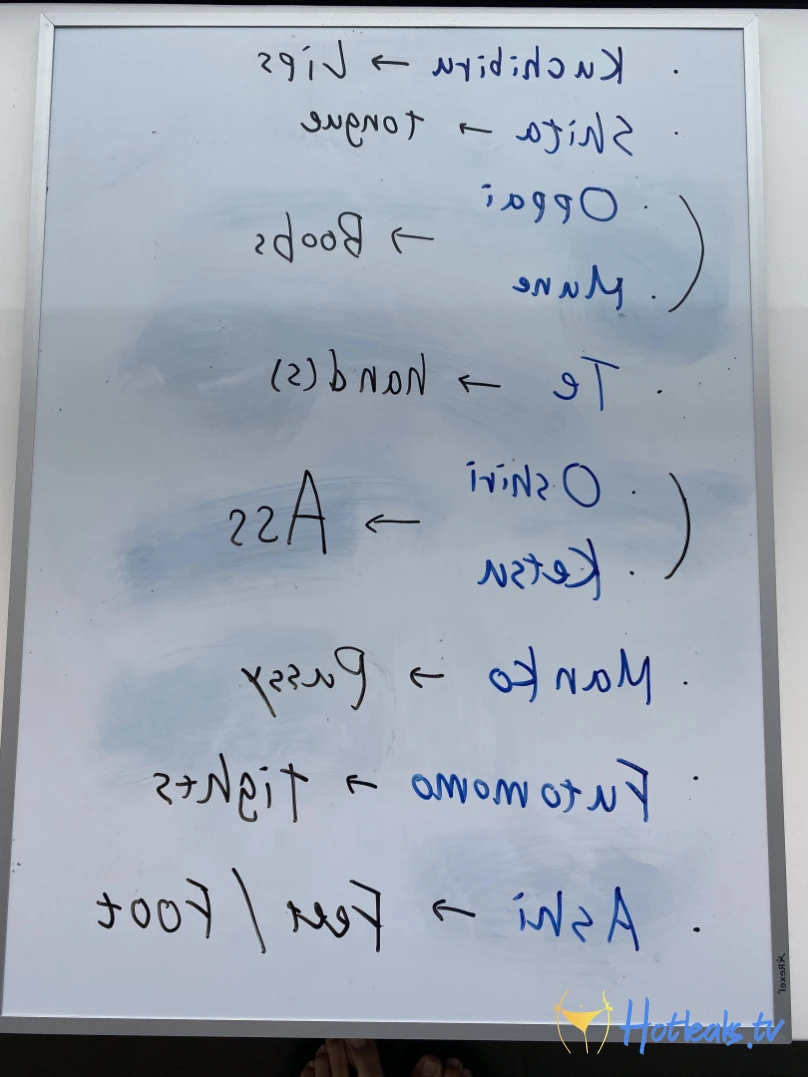 · Kuchibiru → Lips
· Shita → tongue
· Oppai
→ Boobs
· Mune
· Te → hand(s)
· Oshiri
→ Ass
· Ketsu
· Manko → Pussy
· Futomomo → tights
· Ashi → Feet / Foot
Rexel
Hotleaks.tv